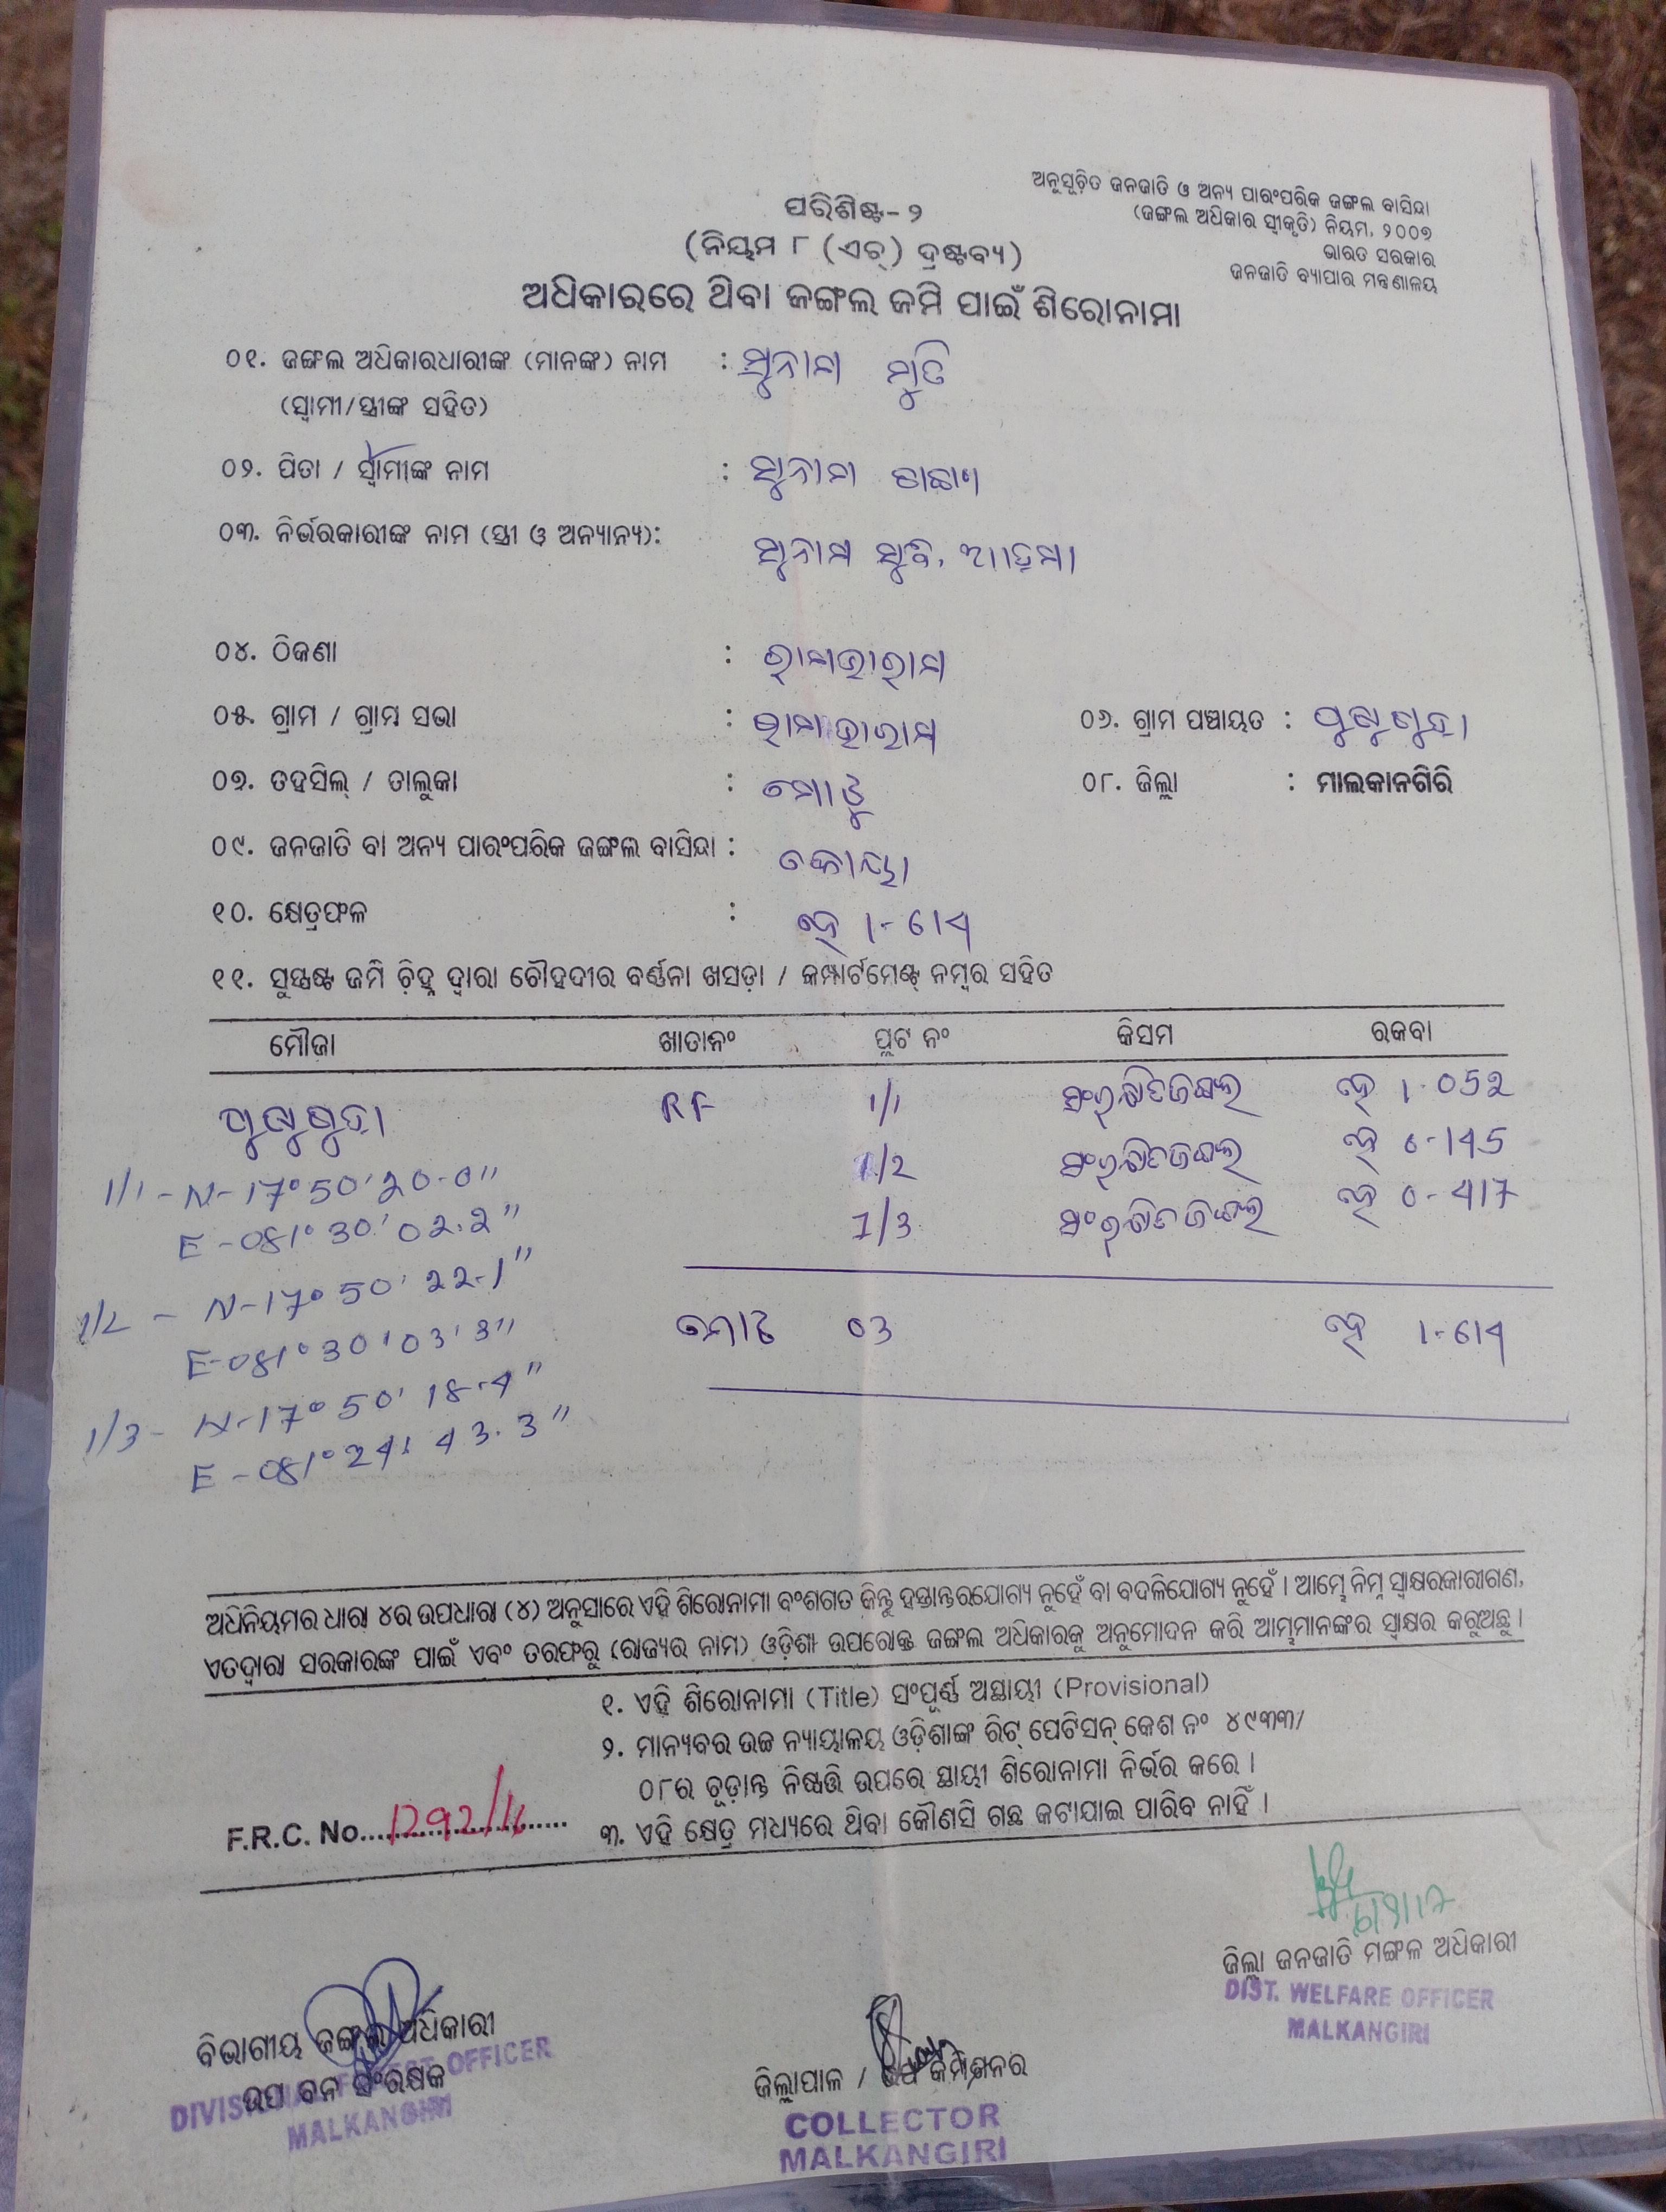 ଅନୁସୂଚିତ ଜନଜାତି ଓ ଅନ୍ୟ ପାରଂପରିକ ଜଙ୍ଗଲ ବାସିନ୍ଦା
(ଜଙ୍ଗଲ ଅଧିକାର ସ୍ୱୀକୃତି) ନିୟମ, ୨୦୦୭
ଭାରତ ସରକାର
ଜନଜାତି ବ୍ୟାପାର ମନ୍ତ୍ରଣାଳୟ
ପରିଶିଷ୍ଟ-୨
(ନିୟମ ୮ (ଏଚ୍) ଦ୍ରଷ୍ଟବ୍ୟ)
ଅଧିକାରରେ ଥିବା ଜଙ୍ଗଲ ଜମି ପାଇଁ ଶିରୋନାମା
୦୧. ଜଙ୍ଗଲ ଅଧିକାରଧାରୀଙ୍କ (ମାନଙ୍କ) ନାମ :
(ସ୍ୱାମୀ/ସ୍ତ୍ରୀଙ୍କ ସହିତ)
୦୨. ପିତା / ସ୍ୱାମୀଙ୍କ ନାମ :
୦୩. ନିର୍ଭରକାରୀଙ୍କ ନାମ (ସ୍ତ୍ରୀ ଓ ଅନ୍ୟାନ୍ୟ):
୦୪. ଠିକଣା :
୦୫. ଗ୍ରାମ / ଗ୍ରାମ ସଭା : ୦୬. ଗ୍ରାମ ପଞ୍ଚାୟତ :
୦୭. ତହସିଲ୍ / ତାଲୁକା : ମୋଟୁ ୦୮. ଜିଲ୍ଲା : ମାଲକାନଗିରି
୦୯. ଜନଜାତି ବା ଅନ୍ୟ ପାରଂପରିକ ଜଙ୍ଗଲ ବାସିନ୍ଦା : କୋୟା
୧୦. କ୍ଷେତ୍ରଫଳ : ହେ 1-614
୧୧. ସୁସ୍ପଷ୍ଟ ଜମି ଚିହ୍ନ ଦ୍ୱାରା ଚୌହଦୀର ବର୍ଣ୍ଣନା ଖସଡ଼ା / କମ୍ପାର୍ଟମେଣ୍ଟ ନମ୍ବର ସହିତ
ମୌଜା ଖାତାନଂ ପ୍ଲଟ ନଂ କିସମ ରକବା
RF 1/1 ସଂରକ୍ଷିତ ଜଙ୍ଗଲ ହେ 1.052
1/2 ସଂରକ୍ଷିତ ଜଙ୍ଗଲ ହେ 0-145
1/3 ସଂରକ୍ଷିତ ଜଙ୍ଗଲ ହେ 0-417
1/1 - N-17°50'20.0"
E-081°30'02.2"
1/2 - N-17°50'22.1"
E-081°30'03'3"
1/3 - N-17°50'18.4"
E-081°24' 43.3"
ମୋଟ 03 ହେ 1-614
ଅଧିନିୟମର ଧାରା ୪ର ଉପଧାରା (୪) ଅନୁସାରେ ଏହି ଶିରୋନାମା ବଂଶଗତ କିନ୍ତୁ ହସ୍ତାନ୍ତରଯୋଗ୍ୟ ନୁହେଁ ବା ବଦଳିଯୋଗ୍ୟ ନୁହେଁ । ଆମ୍ଭେ ନିମ୍ନ ସ୍ୱାକ୍ଷରକାରୀଗଣ,
ଏତଦ୍ଦ୍ୱାରା ସରକାରଙ୍କ ପାଇଁ ଏବଂ ତରଫରୁ (ରାଜ୍ୟର ନାମ) ଓଡ଼ିଶା ଉପରୋକ୍ତ ଜଙ୍ଗଲ ଅଧିକାରକୁ ଅନୁମୋଦନ କରି ଆମ୍ଭମାନଙ୍କର ସ୍ୱାକ୍ଷର କରୁଅଛୁ ।
୧. ଏହି ଶିରୋନାମା (Title) ସଂପୂର୍ଣ୍ଣ ଅସ୍ଥାୟୀ (Provisional)
୨. ମାନ୍ୟବର ଉଚ୍ଚ ନ୍ୟାୟାଳୟ ଓଡ଼ିଶାଙ୍କ ରିଟ୍ ପେଟିସନ୍ କେଶ ନଂ ୪୯୩୩/
୦୮ର ଚୂଡ଼ାନ୍ତ ନିଷ୍ପତ୍ତି ଉପରେ ସ୍ଥାୟୀ ଶିରୋନାମା ନିର୍ଭର କରେ ।
୩. ଏହି କ୍ଷେତ୍ର ମଧ୍ୟରେ ଥିବା କୌଣସି ଗଛ କଟାଯାଇ ପାରିବ ନାହିଁ ।
F.R.C. No.
ଜିଲ୍ଲା ଜନଜାତି ମଙ୍ଗଳ ଅଧିକାରୀ
DIST. WELFARE OFFICER
MALKANGIRI
ବିଭାଗୀୟ ଜଙ୍ଗଲ ଅଧିକାରୀ
ଉପ ବନ ସଂରକ୍ଷକ
DIVISIONAL FOREST OFFICER
MALKANGIRI
ଜିଲ୍ଲାପାଳ / ଉପ କମିଶନର
COLLECTOR
MALKANGIRI